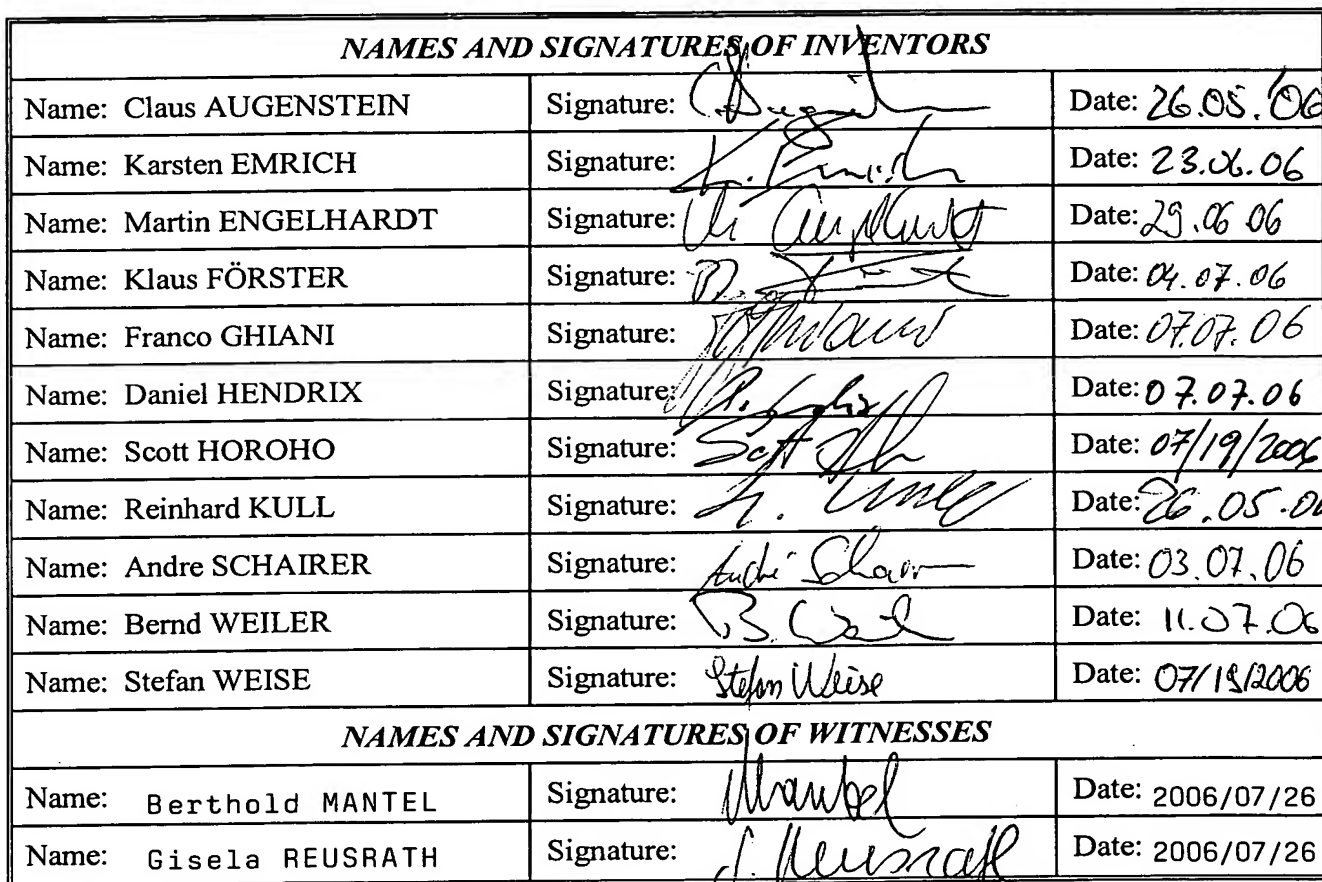 NAMES AND SIGNATURES OF INVENTORS
Name: Claus AUGENSTEIN Signature: Date: 26.05.'06
Name: Karsten EMRICH Signature: K. Emrich Date: 23.06.06
Name: Martin ENGELHARDT Signature: Engelhardt Date: 29.06 06
Name: Klaus FÖRSTER Signature: Date: 04.07.06
Name: Franco GHIANI Signature: Date: 07.07.06
Name: Daniel HENDRIX Signature: Date: 07.07.06
Name: Scott HOROHO Signature: Scott Date: 07/19/2006
Name: Reinhard KULL Signature: Date: 26.05.06
Name: Andre SCHAIRER Signature: André Date: 03.07.06
Name: Bernd WEILER Signature: B. Date: 11.07.06
Name: Stefan WEISE Signature: Stefan Weise Date: 07/19/2006
NAMES AND SIGNATURES OF WITNESSES
Name: Berthold MANTEL Signature: Mantel Date: 2006/07/26
Name: Gisela REUSRATH Signature: Reusrath Date: 2006/07/26